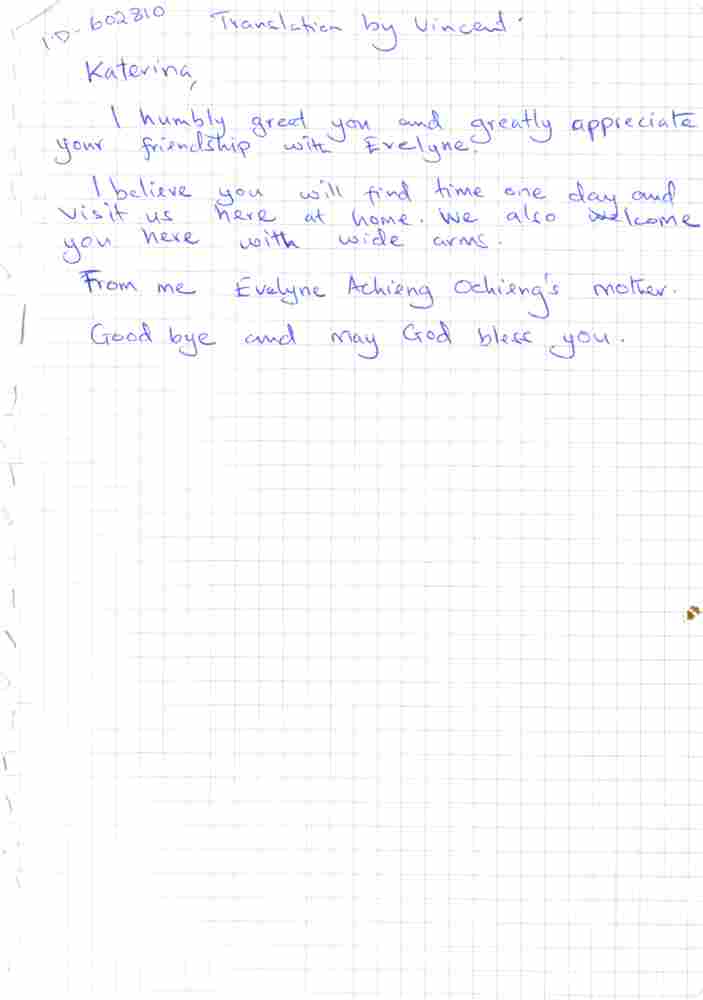 I.D - 602810 Translation by Vincent.
Katerina,
I humbly greet you and greatly appreciate
your friendship with Evelyne.
I believe you will find time one day and
visit us here at home. We also welcome
you here with wide arms.
From me Evelyne Achieng Ochieng's mother.
Good bye and may God bless you.